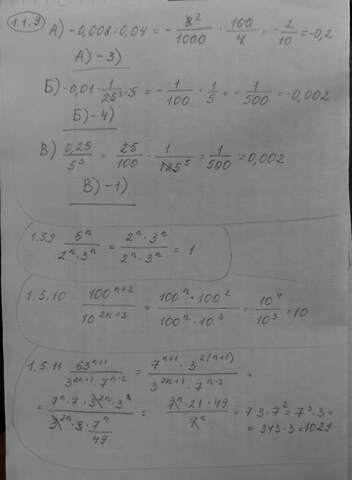 1.1.9
А) -0,008:0,04 = -8²/1000 · 100/4 = -2/10 = -0,2
А) - 3)
Б) -0,01 · 1/25² · 5 = -1/100 · 1/5 = -1/500 = -0,002
Б) - 4)
В) 0,25/5³ = 25/100 · 1/125⁵ = 1/500 = 0,002
В) - 1)
1.5.9 6ⁿ/2ⁿ·3ⁿ = 2ⁿ·3ⁿ/2ⁿ·3ⁿ = 1
1.5.10 100ⁿ⁺²/10²ⁿ⁺³ = 100ⁿ·100²/100ⁿ·10³ = 10⁴/10³ = 10
1.5.11 63ⁿ⁺¹/3²ⁿ⁺¹·7ⁿ⁻² = 7ⁿ⁺¹·3²⁽ⁿ⁺¹⁾/3²ⁿ⁺¹·7ⁿ⁻² =
= 7ⁿ·7·3²ⁿ·3²/3²ⁿ·3·7ⁿ/49 = 7ⁿ·21·49/7ⁿ = 7·3·7² = 7³·3 =
= 343·3 = 1029